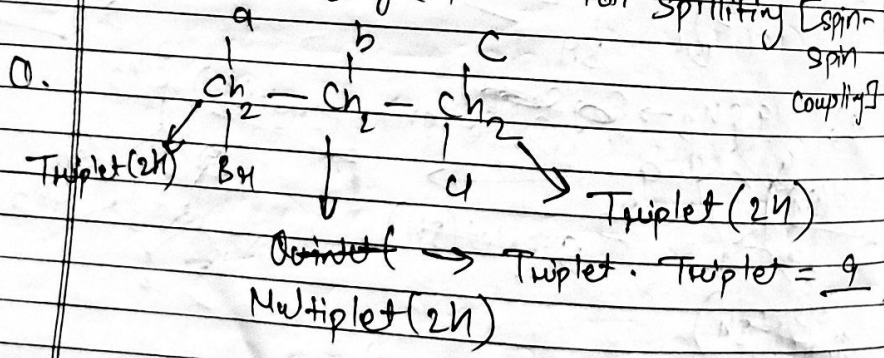 Splitting [spin-
spin
coupling]
a b C
Q. Ch2 — Ch2 — Ch2
Br Cl
Triplet (2H)
Triplet (2H)
Quintet ( → Triplet . Triplet = 9
Multiplet (2H)